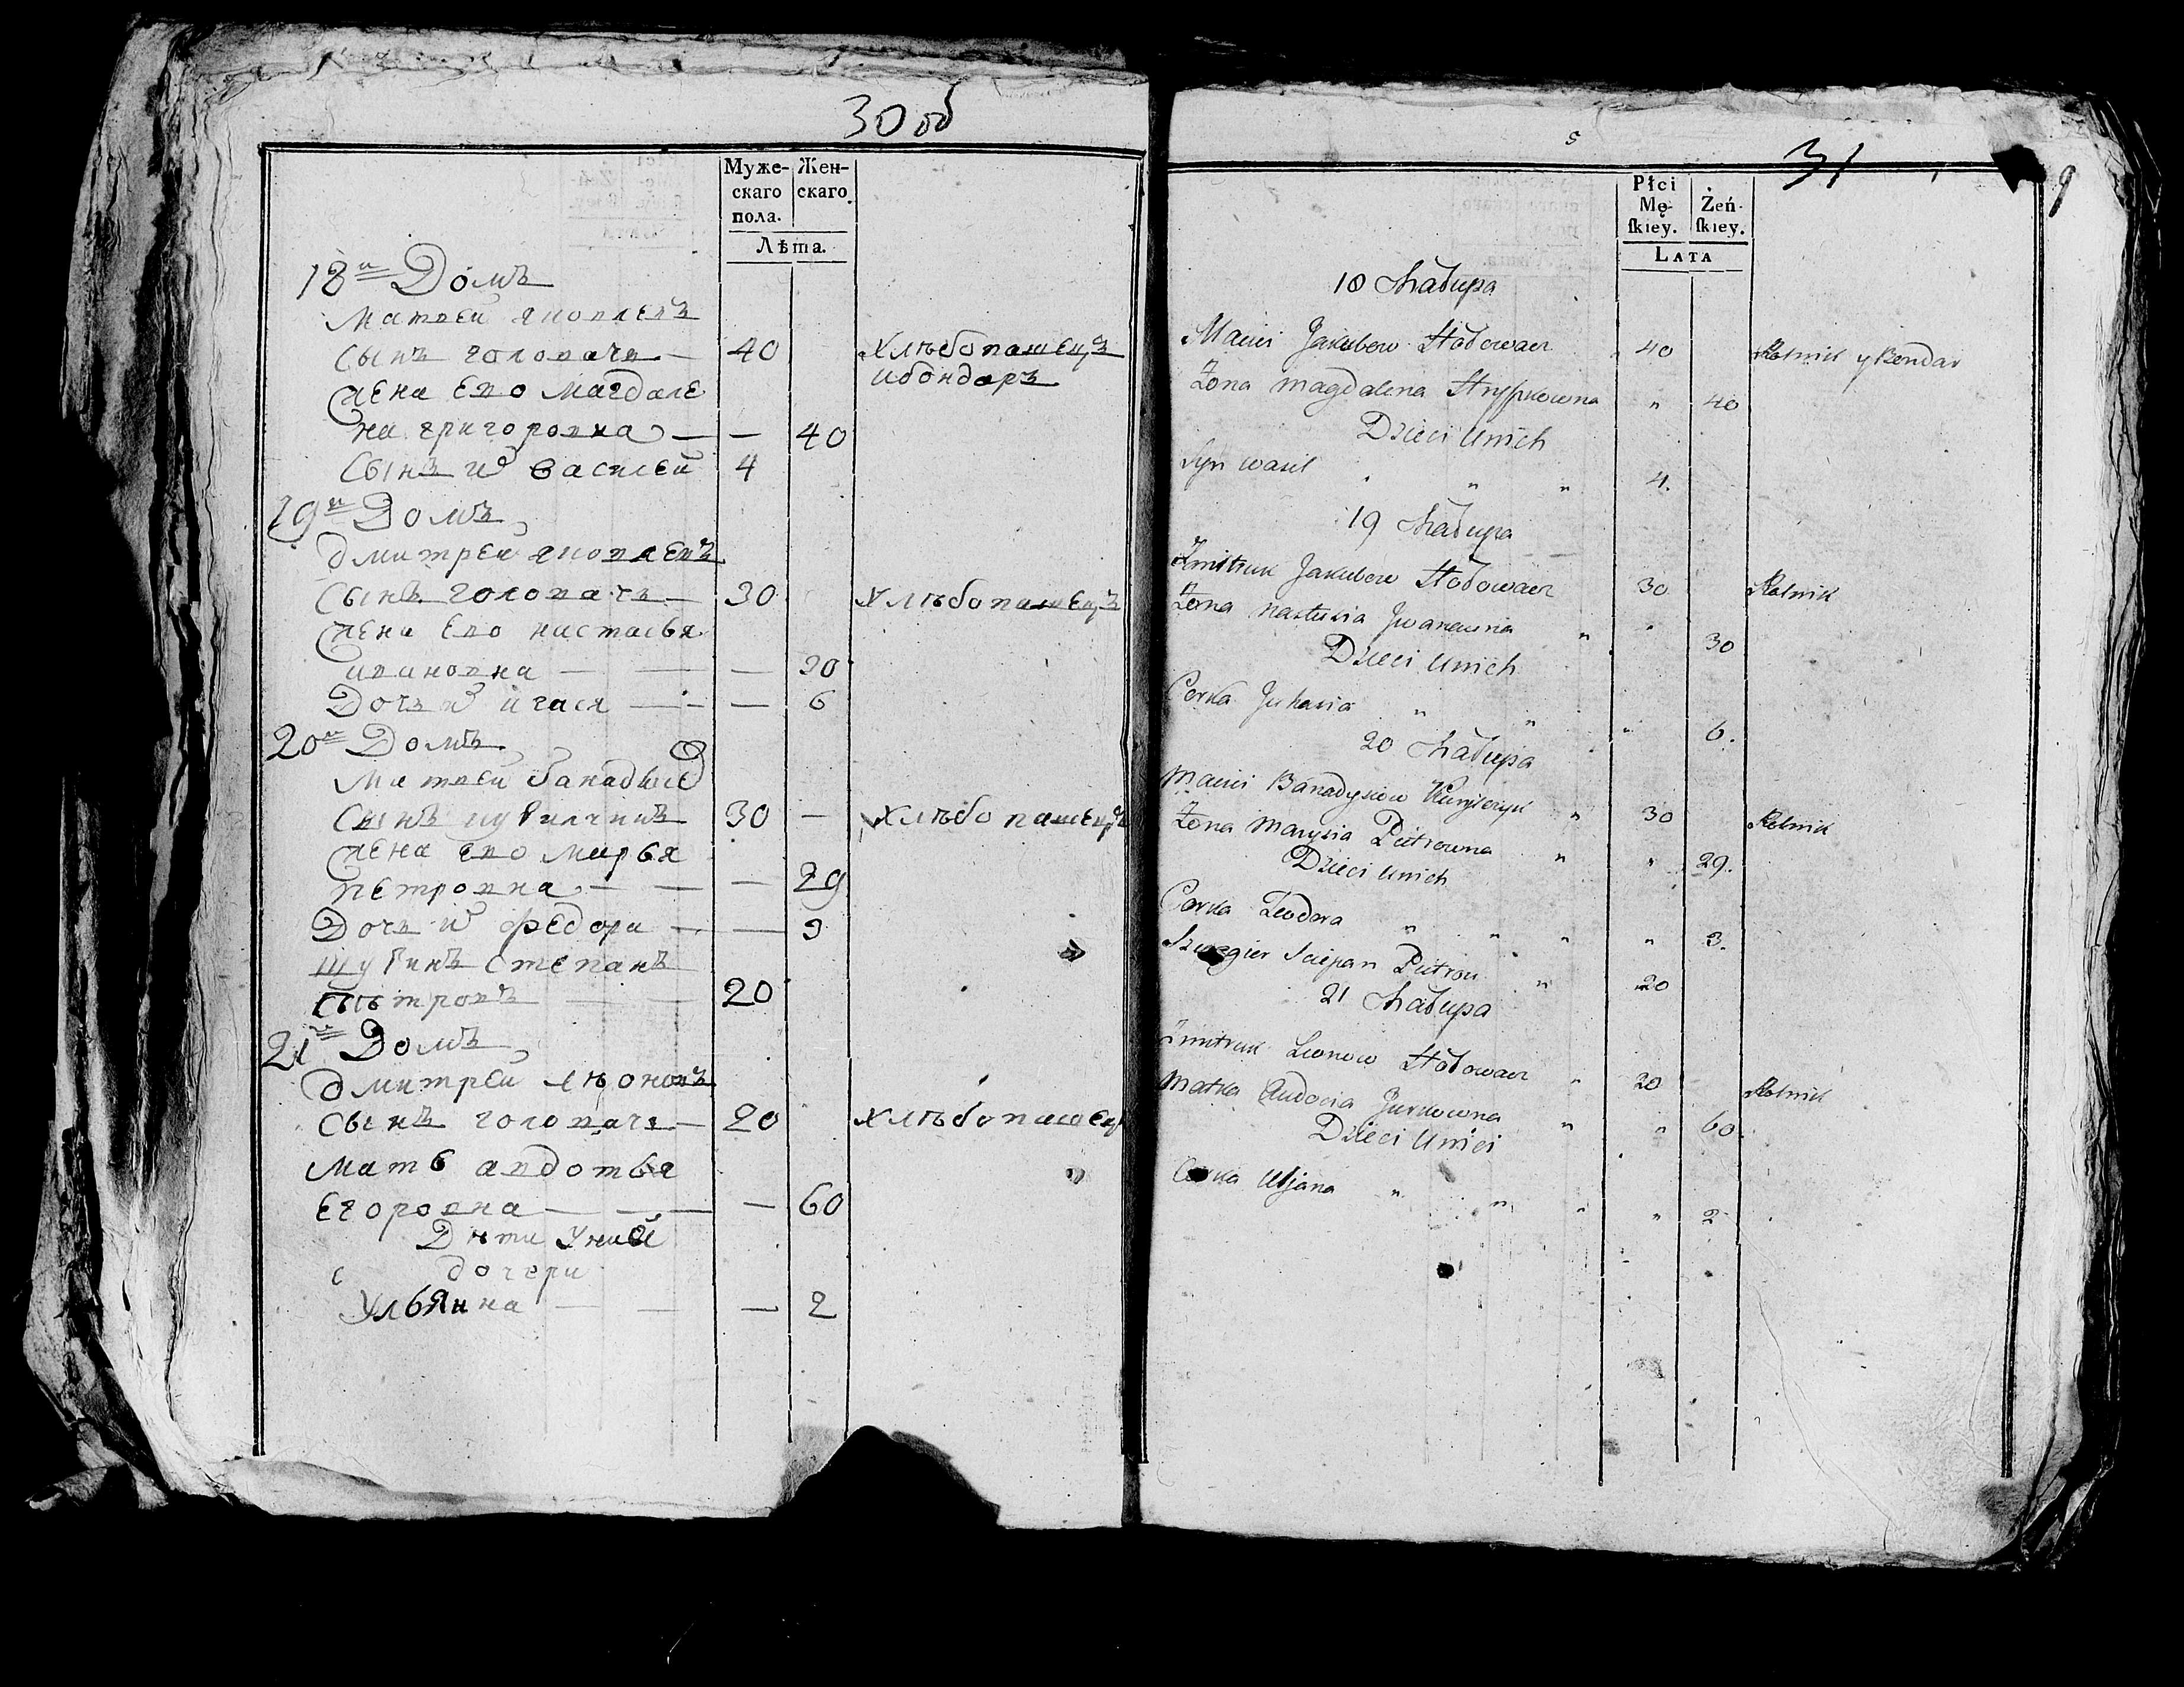 30 об
Муже-
скаго
пола.
Жен-
скаго.
Лѣта.
18й Домъ
Матвей яковлевъ
сынъ головачь — 40 Хлѣбопашецъ
жена Ево Магдале и бондаръ
на григоровна — — 40
Сынъ их василей 4
19й Домъ
дмитрей яковлевъ
Сынъ головачь — 30 Хлѣбопашецъ
жена Ево настасья
ивановна — — — 30
Дочь их игася — — — 6
20й Домъ
Матвей банадысе
Сынъ 30 — Хлѣбопашецъ
жена ево марья
петровна — — — 29
Дочь их федора — — 3
шуринъ степанъ
20
21й Домъ
дмитрей леоновъ
Сынъ головачь — 20 Хлѣбопашец
Мать авдотья
Егоровна — — — — 60
Дѣти у них
дочери
Ульянна — — — 2
5
31
9
Płci
Mę-
ſkiey.
Żeń-
ſkiey.
LATA
18 Chałupa
Maciei Jakubow Hołowacz 40 Rolnik y Bondar
Żona Magdalena Hryszkowna " 40
Dzieci unich
Syn wasil " " " 4.
19 Chałupa
Zmitruk Jakubow Hołowacz 30 Rolnik
Żona Nastusia Jwanowna " " 30
Dzieci unich
Corka Juhasia " " " 6.
20 Chałupa
Maciei Banadysiow " 30 Rolnik
Żona Marysia Piotrowna " " 29.
Dzieci unich
Corka Teodora " " " " 3.
Szwagier Sciepan Piotrow " 20
21 Chałupa
Zmitruk Leonow Hołowacz " 20 Rolnik
Matka Audocia Jurkowna " " 60.
Dzieci unici
Corka Uljana " " " " 2